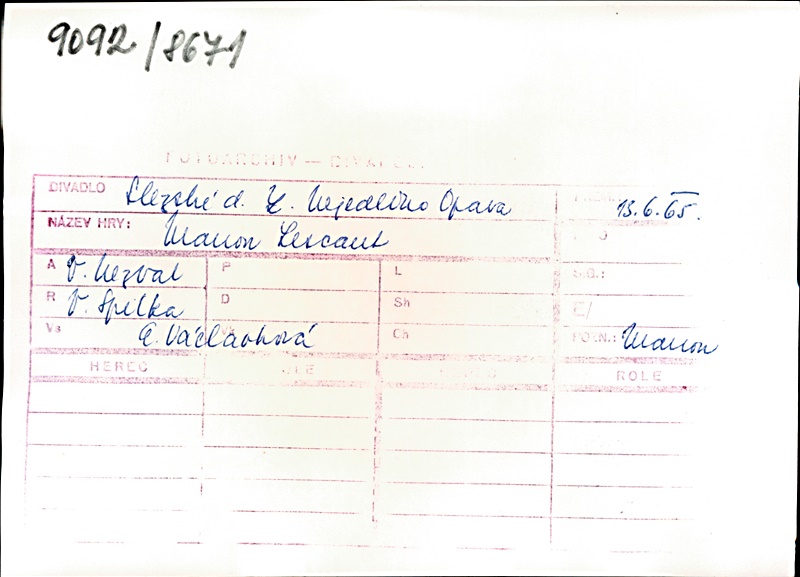 9092/8671
FOTOARCHIV — DIVADEL
DIVADLO Slezské d. Z. Nejedlého Opava 13.6.65.
NÁZEV HRY: Manon Lescaut
A V. Nezval P L S.G.:
R V. Špilka D Sh E/
Vs E. Václavková Ch POZN.: Manon
HEREC ROLE ROLE